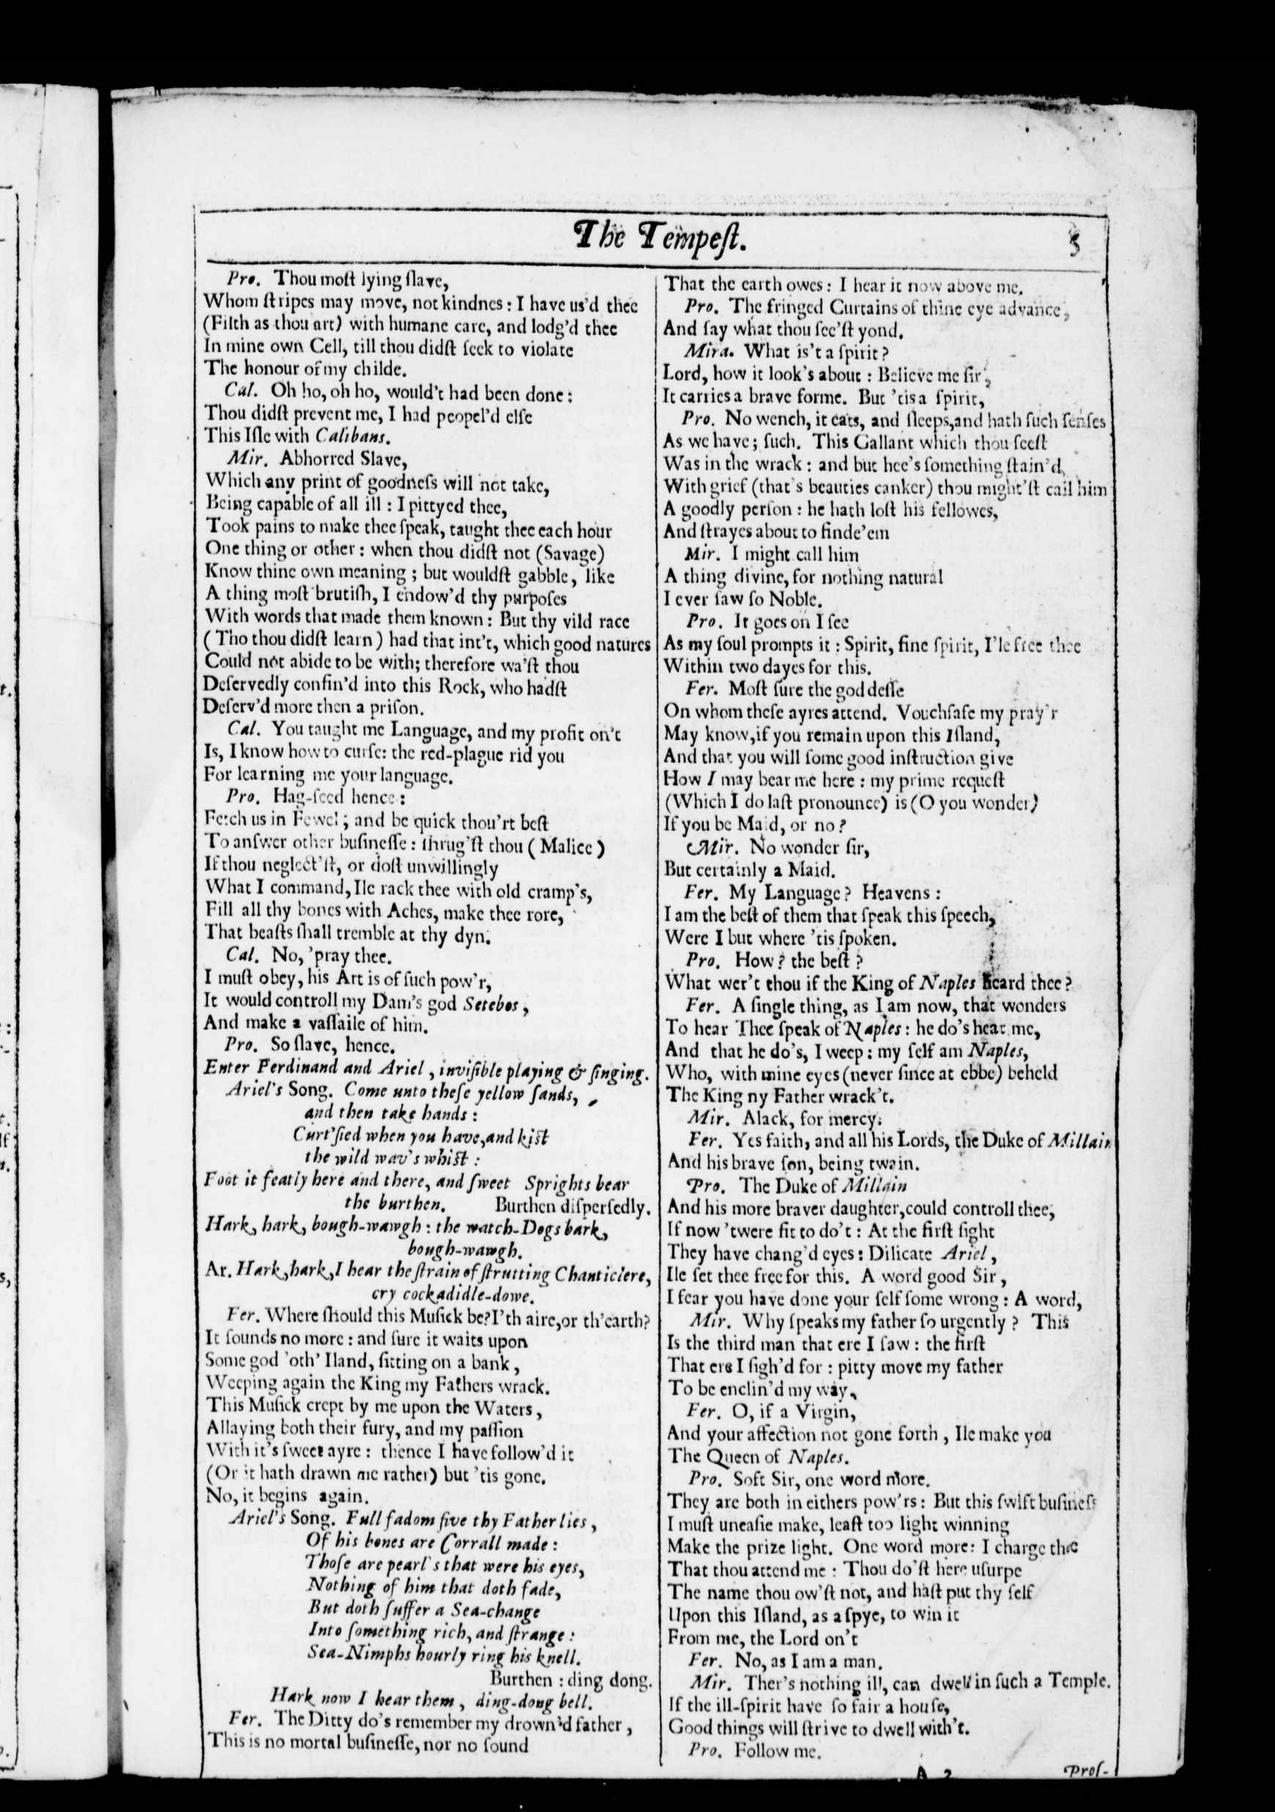 The Tempeſt.
5
Pro. Thou moſt lying ſlave,
Whom ſtripes may move, not kindnes: I have us'd thee
(Filth as thou art) with humane care, and lodg'd thee
In mine own Cell, till thou didſt ſeek to violate
The honour of my childe.
Cal. Oh ho, oh ho, would't had been done:
Thou didſt prevent me, I had peopel'd elſe
This Iſle with Calibans.
Mir. Abhorred Slave,
Which any print of goodneſs will not take,
Being capable of all ill: I pittyed thee,
Took pains to make thee ſpeak, taught thee each hour
One thing or other: when thou didſt not (Savage)
Know thine own meaning; but wouldſt gabble, like
A thing moſt brutiſh, I endow'd thy purpoſes
With words that made them known: But thy vild race
(Tho thou didſt learn) had that int't, which good natures
Could not abide to be with; therefore wa'ſt thou
Deſervedly confin'd into this Rock, who hadſt
Deſerv'd more then a priſon.
Cal. You taught me Language, and my profit on't
Is, I know how to curſe: the red-plague rid you
For learning me your language.
Pro. Hag-ſeed hence:
Fetch us in Fewel; and be quick thou'rt beſt
To anſwer other buſineſſe: ſhrug'ſt thou (Malice)
If thou neglect'ſt, or doſt unwillingly
What I command, Ile rack thee with old cramp's,
Fill all thy bones with Aches, make thee rore,
That beaſts ſhall tremble at thy dyn.
Cal. No, 'pray thee.
I muſt obey, his Art is of ſuch pow'r,
It would controll my Dam's god Setebos,
And make a vaſſaile of him.
Pro. So ſlave, hence.
Enter Ferdinand and Ariel, inviſible playing & ſinging.
Ariel's Song. Come unto theſe yellow ſands,
and then take hands:
Curt'ſied when you have, and kiſt
the wild wav's whiſt:
Foot it featly here and there, and ſweet Sprights bear
the burthen. Burthen diſperſedly.
Hark, hark, bough-wawgh: the watch-Dogs bark,
bough-wawgh.
Ar. Hark, hark, I hear the ſtrain of ſtrutting Chanticlere,
cry cockadidle-dowe.
Fer. Where ſhould this Muſick be? I'th aire, or th'earth?
It ſounds no more: and ſure it waits upon
Some god 'oth' Iland, ſitting on a bank,
Weeping again the King my Fathers wrack.
This Muſick crept by me upon the Waters,
Allaying both their fury, and my paſſion
With it's ſweet ayre: thence I have follow'd it
(Or it hath drawn me rather) but 'tis gone.
No, it begins again.
Ariel's Song. Full fadom five thy Father lies,
Of his bones are Corrall made:
Thoſe are pearl's that were his eyes,
Nothing of him that doth fade,
But doth ſuffer a Sea-change
Into ſomething rich, and ſtrange:
Sea-Nimphs hourly ring his knell.
Burthen: ding dong.
Hark now I hear them, ding-dong bell.
Fer. The Ditty do's remember my drown'd father,
This is no mortal buſineſſe, nor no ſound
That the earth owes: I hear it now above me.
Pro. The fringed Curtains of thine eye advance,
And ſay what thou ſee'ſt yond.
Mira. What is't a ſpirit?
Lord, how it look's about: Believe me ſir,
It carries a brave forme. But 'tis a ſpirit,
Pro. No wench, it eats, and ſleeps, and hath ſuch ſenſes
As we have; ſuch. This Gallant which thou ſeeſt
Was in the wrack: and but hee's ſomething ſtain'd,
With grief (that's beauties canker) thou might'ſt call him
A goodly perſon: he hath loſt his fellowes,
And ſtrayes about to finde'em
Mir. I might call him
A thing divine, for nothing natural
I ever ſaw ſo Noble.
Pro. It goes on I ſee
As my ſoul prompts it: Spirit, fine ſpirit, I'le free thee
Within two dayes for this.
Fer. Moſt ſure the goddeſſe
On whom theſe ayres attend. Vouchſafe my pray'r
May know, if you remain upon this Iſland,
And that you will ſome good inſtruction give
How I may bear me here: my prime requeſt
(Which I do laſt pronounce) is (O you wonder)
If you be Maid, or no?
Mir. No wonder ſir,
But certainly a Maid.
Fer. My Language? Heavens:
I am the beſt of them that ſpeak this ſpeech,
Were I but where 'tis ſpoken.
Pro. How? the beſt?
What wer't thou if the King of Naples heard thee?
Fer. A ſingle thing, as I am now, that wonders
To hear Thee ſpeak of Naples: he do's hear me,
And that he do's, I weep: my ſelf am Naples,
Who, with mine eyes (never ſince at ebbe) beheld
The King ny Father wrack't.
Mir. Alack, for mercy.
Fer. Yes faith, and all his Lords, the Duke of Millain
And his brave ſon, being twain.
Pro. The Duke of Millain
And his more braver daughter, could controll thee,
If now 'twere fit to do't: At the firſt ſight
They have chang'd eyes: Dilicate Ariel,
Ile ſet thee free for this. A word good Sir,
I fear you have done your ſelf ſome wrong: A word,
Mir. Why ſpeaks my father ſo urgently? This
Is the third man that ere I ſaw: the firſt
That ere I ſigh'd for: pitty move my father
To be enclin'd my way.
Fer. O, if a Virgin,
And your affection not gone forth, Ile make you
The Queen of Naples.
Pro. Soft Sir, one word more.
They are both in eithers pow'rs: But this ſwift buſineſs
I muſt uneaſie make, leaſt too light winning
Make the prize light. One word more: I charge thee
That thou attend me: Thou do'ſt here uſurpe
The name thou ow'ſt not, and haſt put thy ſelf
Upon this Iſland, as a ſpye, to win it
From me, the Lord on't
Fer. No, as I am a man.
Mir. Ther's nothing ill, can dwell in ſuch a Temple.
If the ill-ſpirit have ſo fair a houſe,
Good things will ſtrive to dwell with't.
Pro. Follow me.
A 2
Proſ-